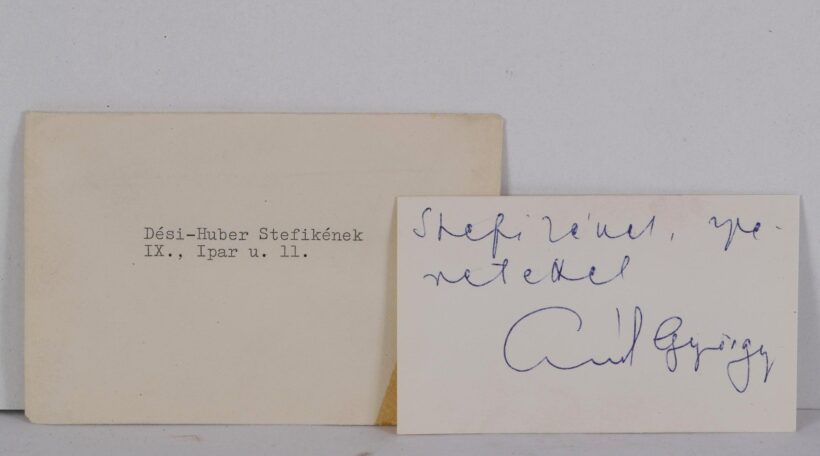 Dési-Huber Stefikének
IX., Ipar u. 11.
Stefikének, sze-
retettel
György